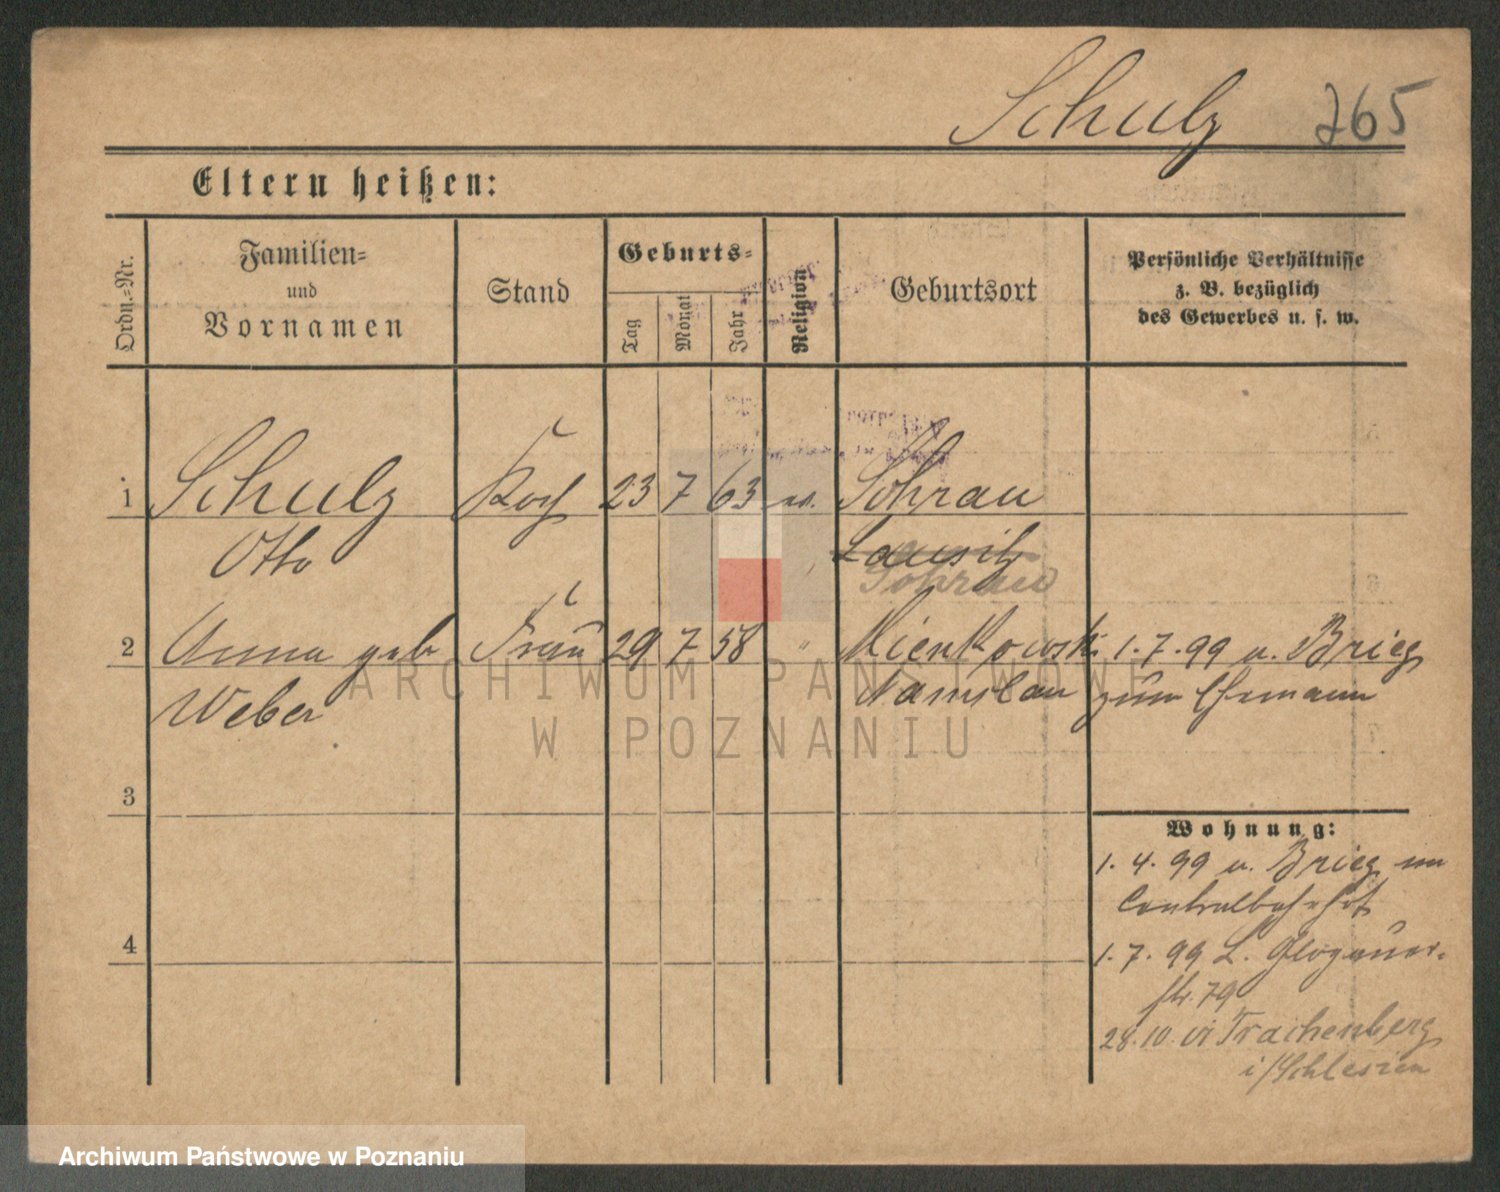 Schulz 265
Eltern heißen:
Ordn.-Nr.
Familien-
und
Vornamen
Stand
Geburts-
Tag
Monat
Jahr
Religion
Geburtsort
Persönliche Verhältnisse
z. B. bezüglich
des Gewerbes u. s. w.
1 Schulz Koch 23 7 63 Sohrau
Otto Lausitz
Sohrau
2 Anna geb Frau 29 7 58 " 1.7.99 u. Brieg
Weber Namslau zum Ehemann
3
Wohnung:
1.4.99 u. Brieg
Centralbahnhof
4
1.7.99 Glogauer-
str. 79
28.10. Trachenberg
i/Schlesien
ARCHIWUM PAŃSTWOWE
W POZNANIU
Archiwum Państwowe w Poznaniu